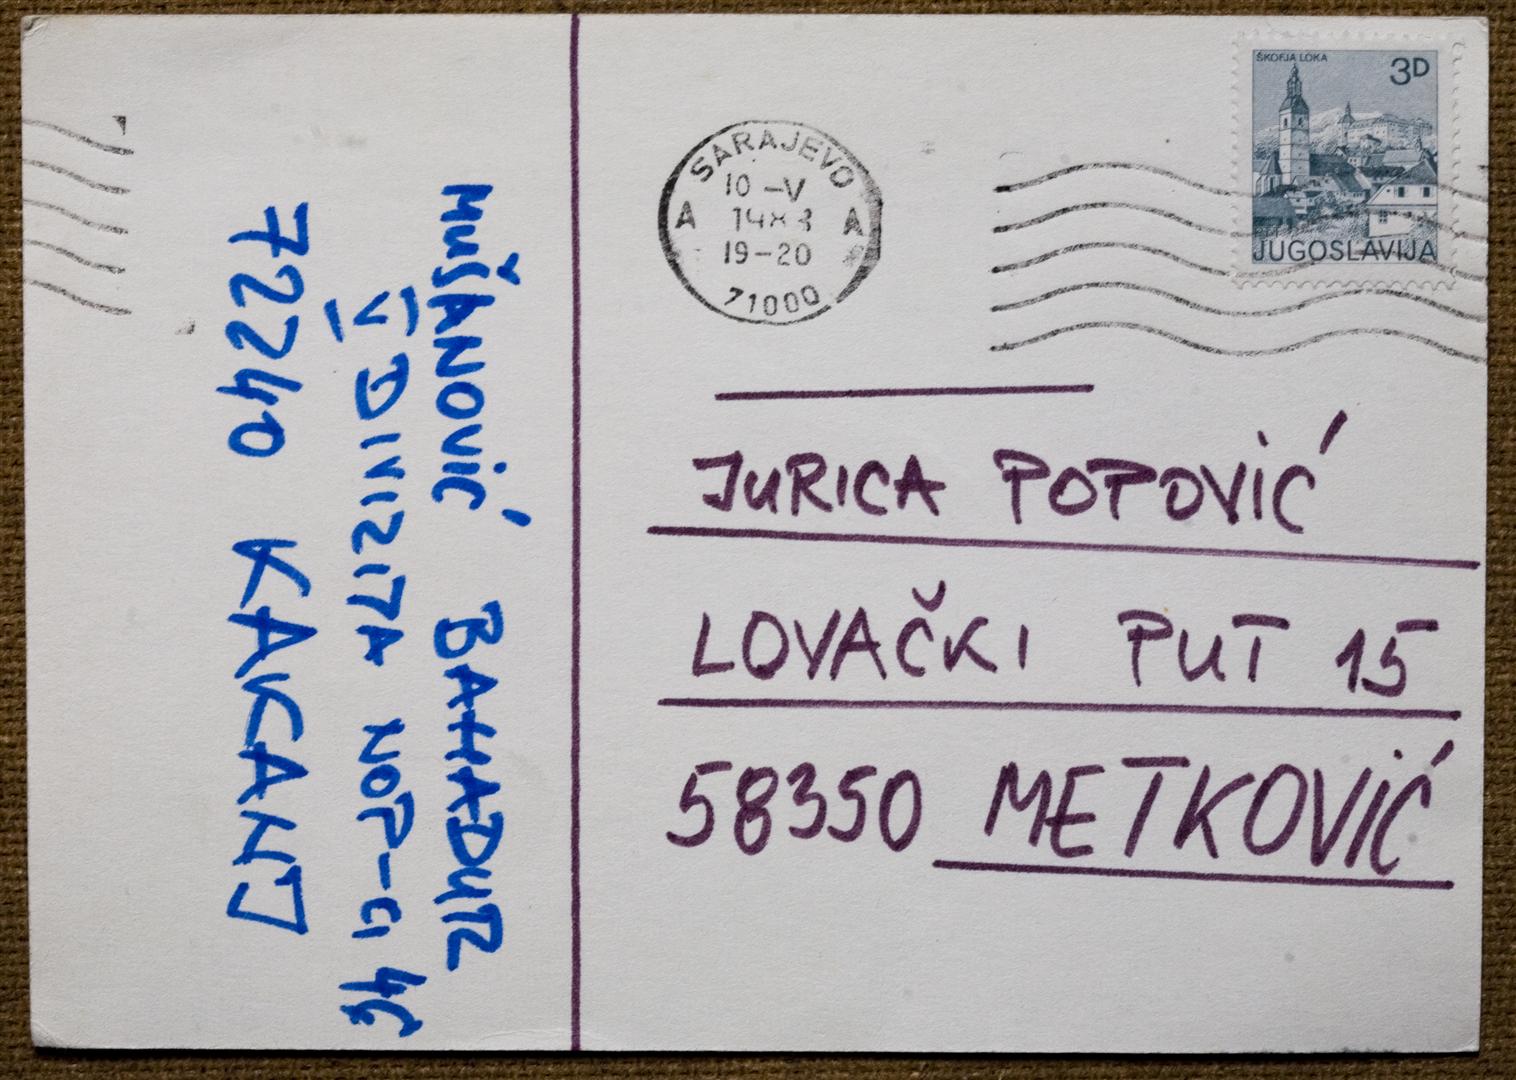 MUŠANOVIĆ BAHADIR
V DIVIZIJA NOP-a 4c
72240 KAKANJ
SARAJEVO
10 -V
A A
19-20
71000
ŠKOFJA LOKA
3D
JUGOSLAVIJA
JURICA POPOVIĆ
LOVAČKI PUT 15
58350 METKOVIĆ